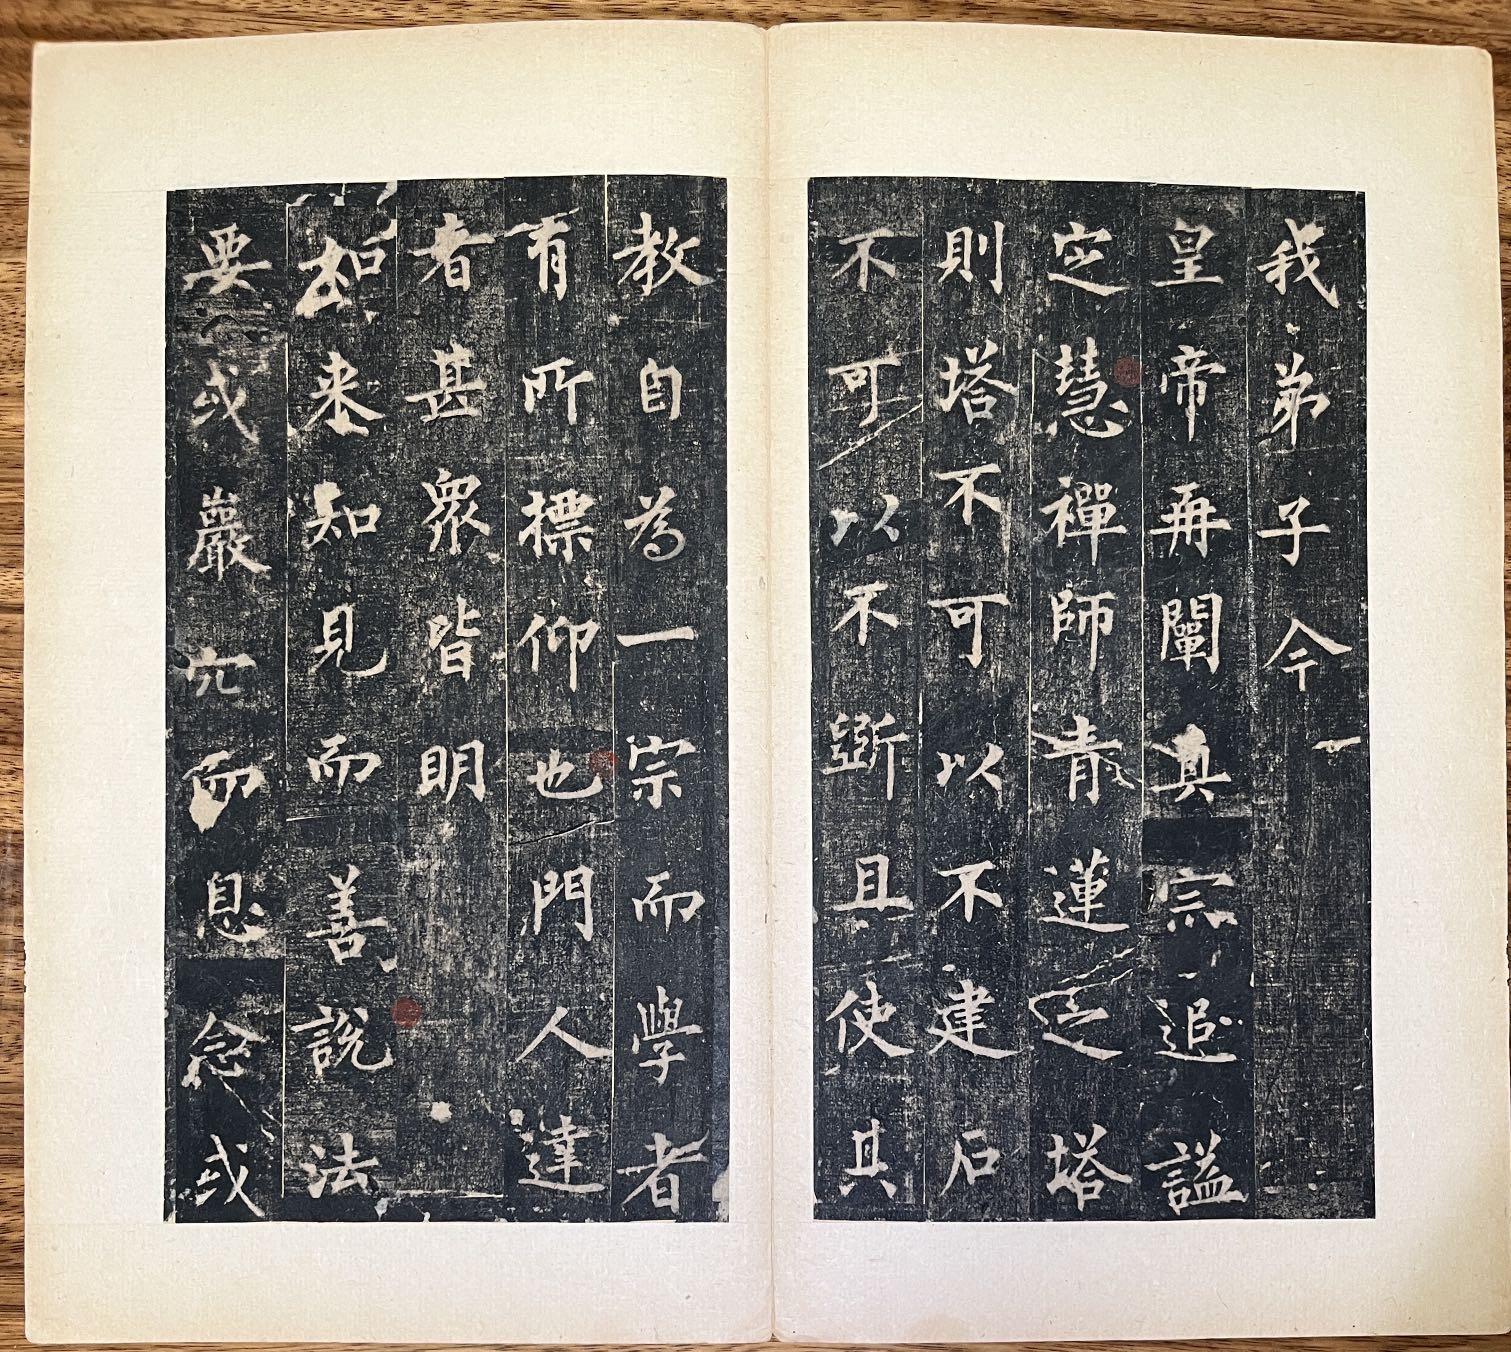 我弟子今
皇帝再闡真宗追謚
定慧禪師青蓮之塔
則塔不可以不建石
不可以不斲且使其
教自為一宗而學者
有所標仰也門人達
者甚眾皆明
如来知見而善說法
要或巖穴而息念或